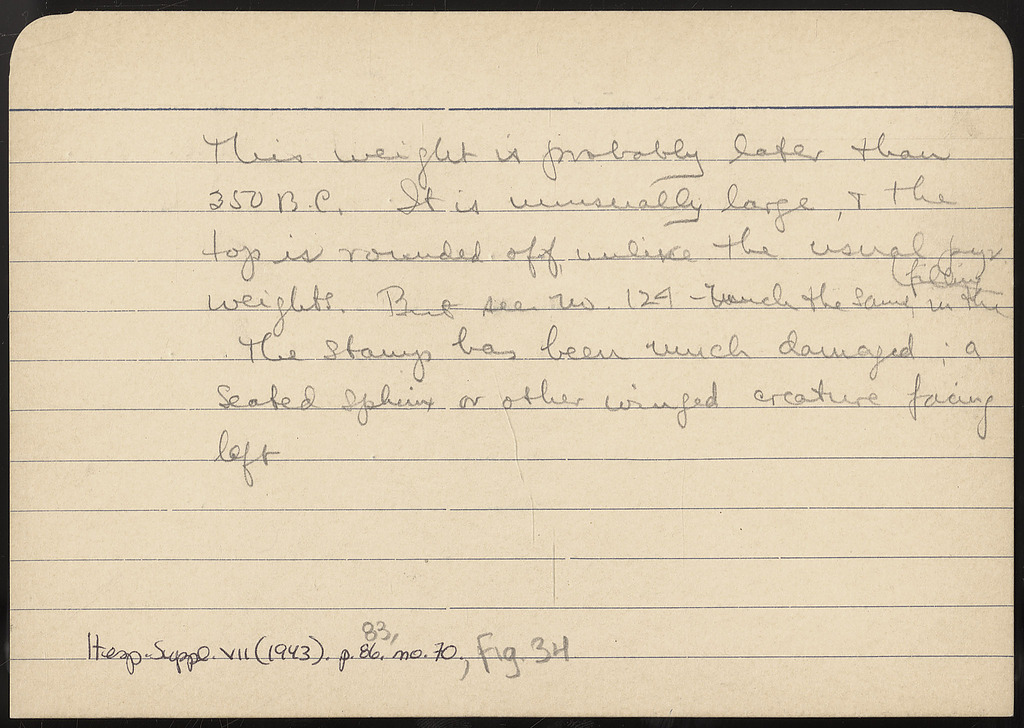 This weight is probably later than
350 B.C. It is unusually large, & the
top is rounded off, unlike the usual pyr.
weights. But see no. 124 - much the same, in the filling
The stamp has been much damaged; a
seated sphinx or other winged creature facing
left
83,
Hesp. Suppl. VII (1943). p. 86. no. 70, Fig. 34